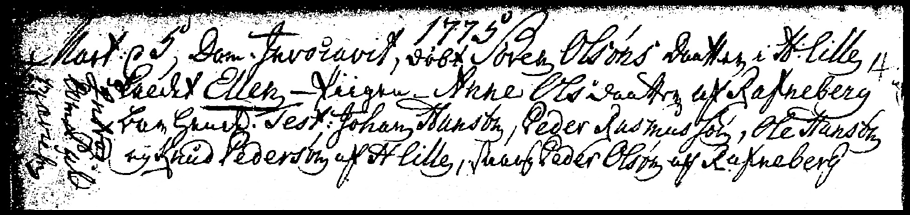 1775
Mart. d 5, Dom. Invocavit, döbt Sören Olsöns Daatter i H lille
kaldet Ellen – Pigen – Anne Ols daatter af Rafneberg
bar hende. Test: Johan Hansön, Peder Rasmussön, Ole Hansön
og Knud Pedersön af H lille, Peder Olsön af Rafneberg